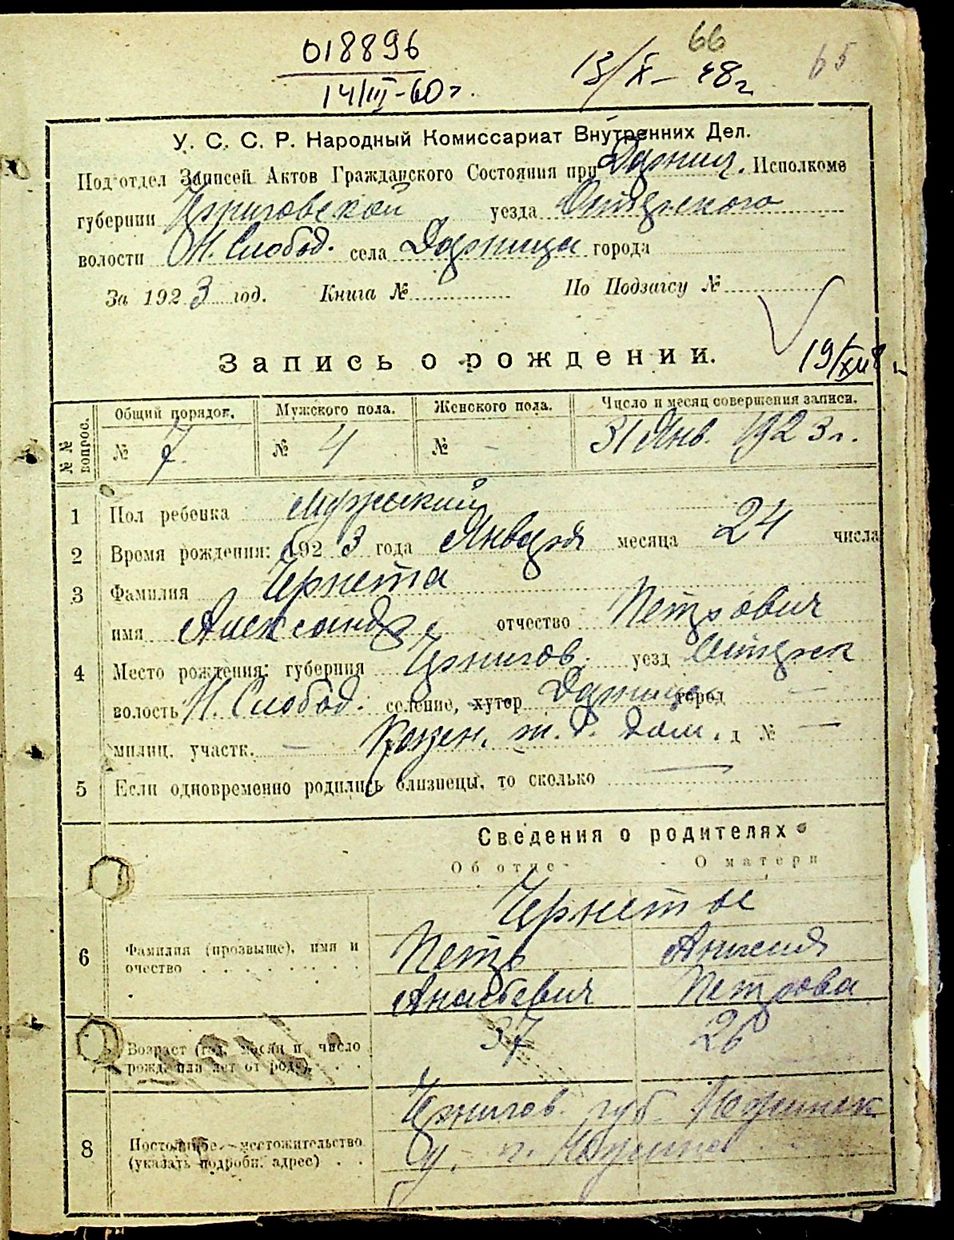 018896
14/III-60г.
13/X-48г
66
65
У. С. С. Р. Народный Комиссариат Внутренних Дел.
Под'отдел Записей Актов Гражданского Состояния при Дарниц. Исполкоме
губернии Черниговской уезда
волости Н. Слобод. села Дарница города
За 1923 год. Книга № По Подзагсу №
Запись о рождении.
№№ вопрос. Общий порядок. Мужского пола. Женского пола. Число и месяц совершения записи.
№ 7 № 4 № - 31 Янв. 1923 г.
1 Пол ребенка Мужский
2 Время рождения: 1923 года Января месяца 24 числа
3 Фамилия Чернета
имя Александр отчество Петрович
4 Место рождения: губерния Чернигов. уезд
волость Н. Слобод. селение, хутор Дарница город —
милиц. участк. — ж. д. дом. д № —
5 Если одновременно родились близнецы, то сколько —
Сведения о родителях
Об отце О матери
Чернетые
6 Фамилия (прозвыще), имя и Петр
очество
Петрова
Возраст (год, месяц и число 37 26
рожд. или лет от роду)
Чернигов. губ.
8 Постоянное местожительство у. г.
(указать подробн. адрес)